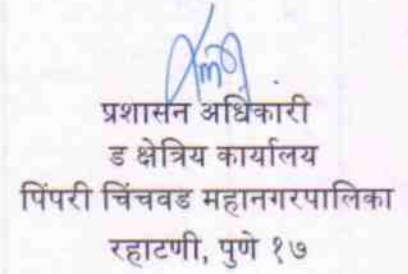 प्रशासन अधिकारी
ड क्षेत्रिय कार्यालय
पिंपरी चिंचवड महानगरपालिका
रहाटणी, पुणे १७